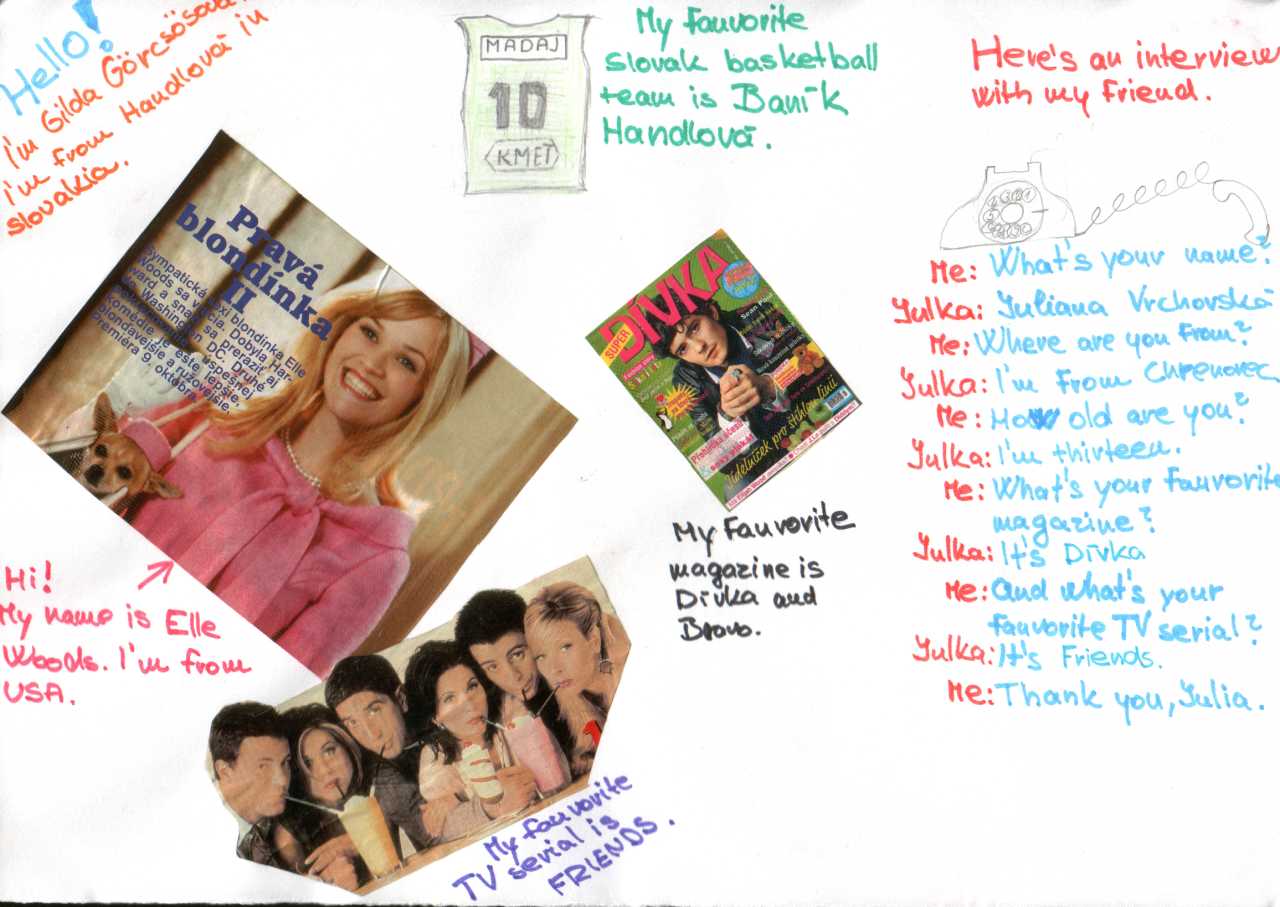 Hello!
I'm Gilda Görcsösová.
I'm from Handlová in
slovakia.
MADAJ
10
KMEŤ
My Fauvorite
slovak basketball
team is Baník
Handlová.
Here's an interview
with my Friend.
Pravá
blondínka
II
Sympatická sexi blondínka Elle
Woods sa vracia. Dobyla Har-
ward a snaží sa preraziť aj
vo Washingtone DC. Druhé
uspešnej
komédie je ešte lepšie,
blondavejšie a ružovejšie.
Premiéra 9. októbra.
SUPER
DÍVKA
Jídelníček pro štíhlou linii
Hi!
My name is Elle
Woods. I'm from
USA.
My Fauvorite
magazine is
Dívka and
Bravo.
My fauvorite
TV serial is
FRIENDS.
Me: What's your name?
Yulka: Yuliana Vrchovská
Me: Where are you from?
Yulka: I'm From Chrenovec
Me: How old are you?
Yulka: I'm thirteen.
Me: What's your fauvorite
magazine?
Yulka: It's Dívka
Me: And what's your
fauvorite TV serial?
Yulka: It's Friends.
Me: Thank you, Yulia.